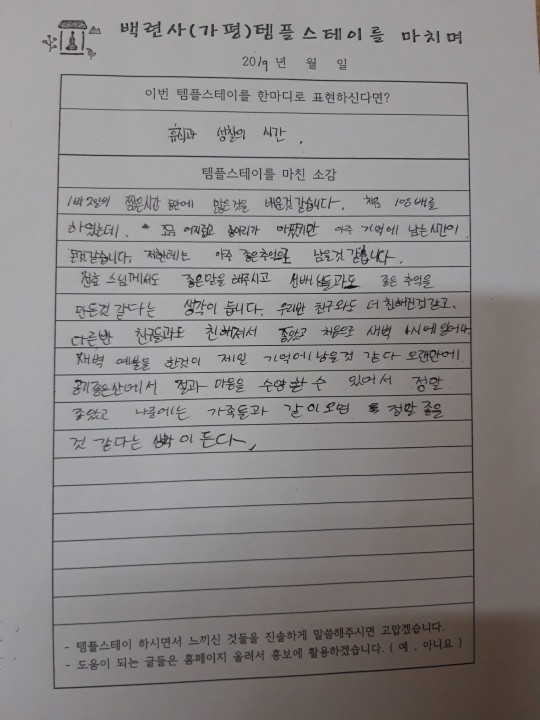 백련사(가평)템플스테이를 마치며
2019년 월 일
이번 템플스테이를 한마디로 표현하신다면?
휴식과 성찰의 시간.
템플스테이를 마친 소감
1박2일의 짧은시간 동안에 많은것을 배운것 같습니다. 처음 108배를
하였는데. 조금 어지럽고 종아리가 아팠지만 아주 기억에 남는시간이
된것같습니다. 저한테는 아주 좋은추억으로 남을것 같습니다.
스님께서도 좋은말을 해주시고 선배님들과도 좋은 추억을
만든것 같다는 생각이 듭니다. 우리반 친구와도 더 친해진것같고.
다른반 친구들과도 친해져서 좋았고 처음으로 새벽 4시에 일어나
새벽 예불을 한것이 제일 기억에남을것 같다 오랜만에
공기좋은산에서 절과 마음을 수양할 수 있어서 정말
좋았고 나중에는 가족들과 같이오면 정말 좋을
것 같다는 생각이 든다.
- 템플스테이 하시면서 느끼신 것들을 진솔하게 말씀해주시면 고맙겠습니다.
- 도움이 되는 글들은 홈페이지 올려서 홍보에 활용하겠습니다. ( 예 , 아니요 )